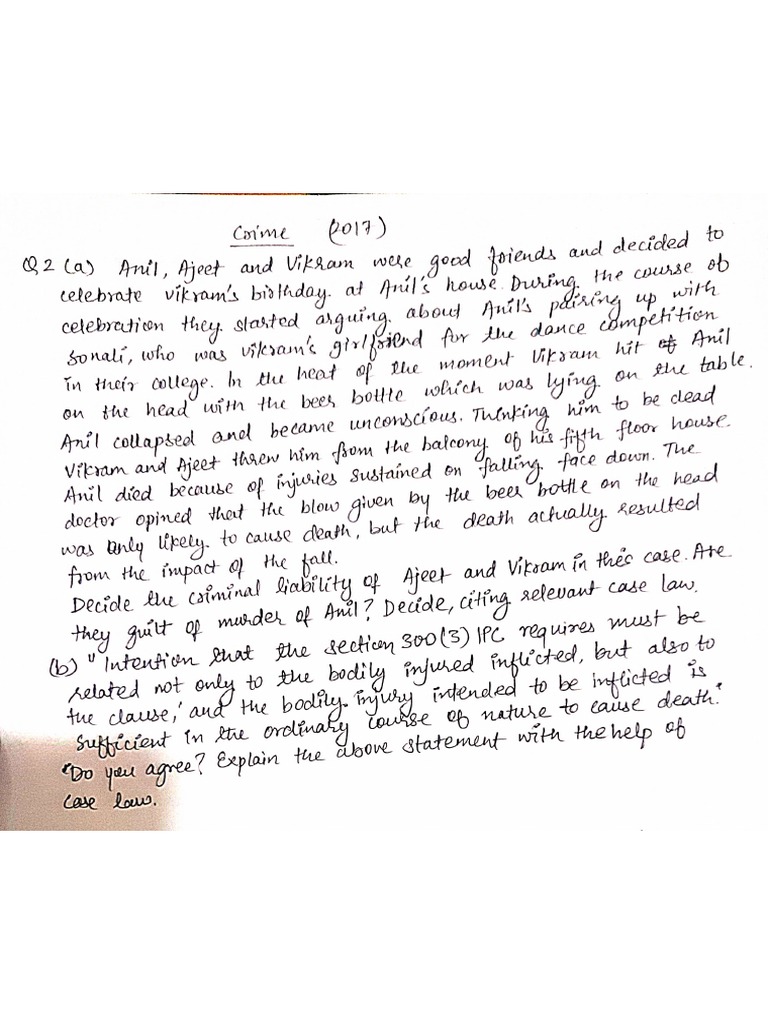 Crime (2017)
Q2 (a) Anil, Ajeet and Vikram were good friends and decided to
celebrate vikram's birthday. at Anil's house. During the course of
celebration they started arguing about Anil's pairing up with
Sonali, who was vikram's girlfriend for the dance competition
in their college. In the heat of the moment Vikram hit Anil
on the head with the beer bottle which was lying on the table.
Anil collapsed and became unconscious. Thinking him to be dead
Vikram and Ajeet threw him from the balcony of his fifth floor house.
Anil died because of injuries sustained on falling face down. The
doctor opined that the blow given by the beer bottle on the head
was only likely to cause death, but the death actually resulted
from the impact of the fall.
Decide the criminal liability of Ajeet and Vikram in this case. Are
they guilt of murder of Anil? Decide, citing relevant case law.
(b) "Intention that the section 300(3) IPC requires must be
related not only to the bodily injured inflicted, but also to
the clause,' and the bodily injury intended to be inflicted is
sufficient in the ordinary course of nature to cause death."
"Do you agree? Explain the above statement with the help of
case law.